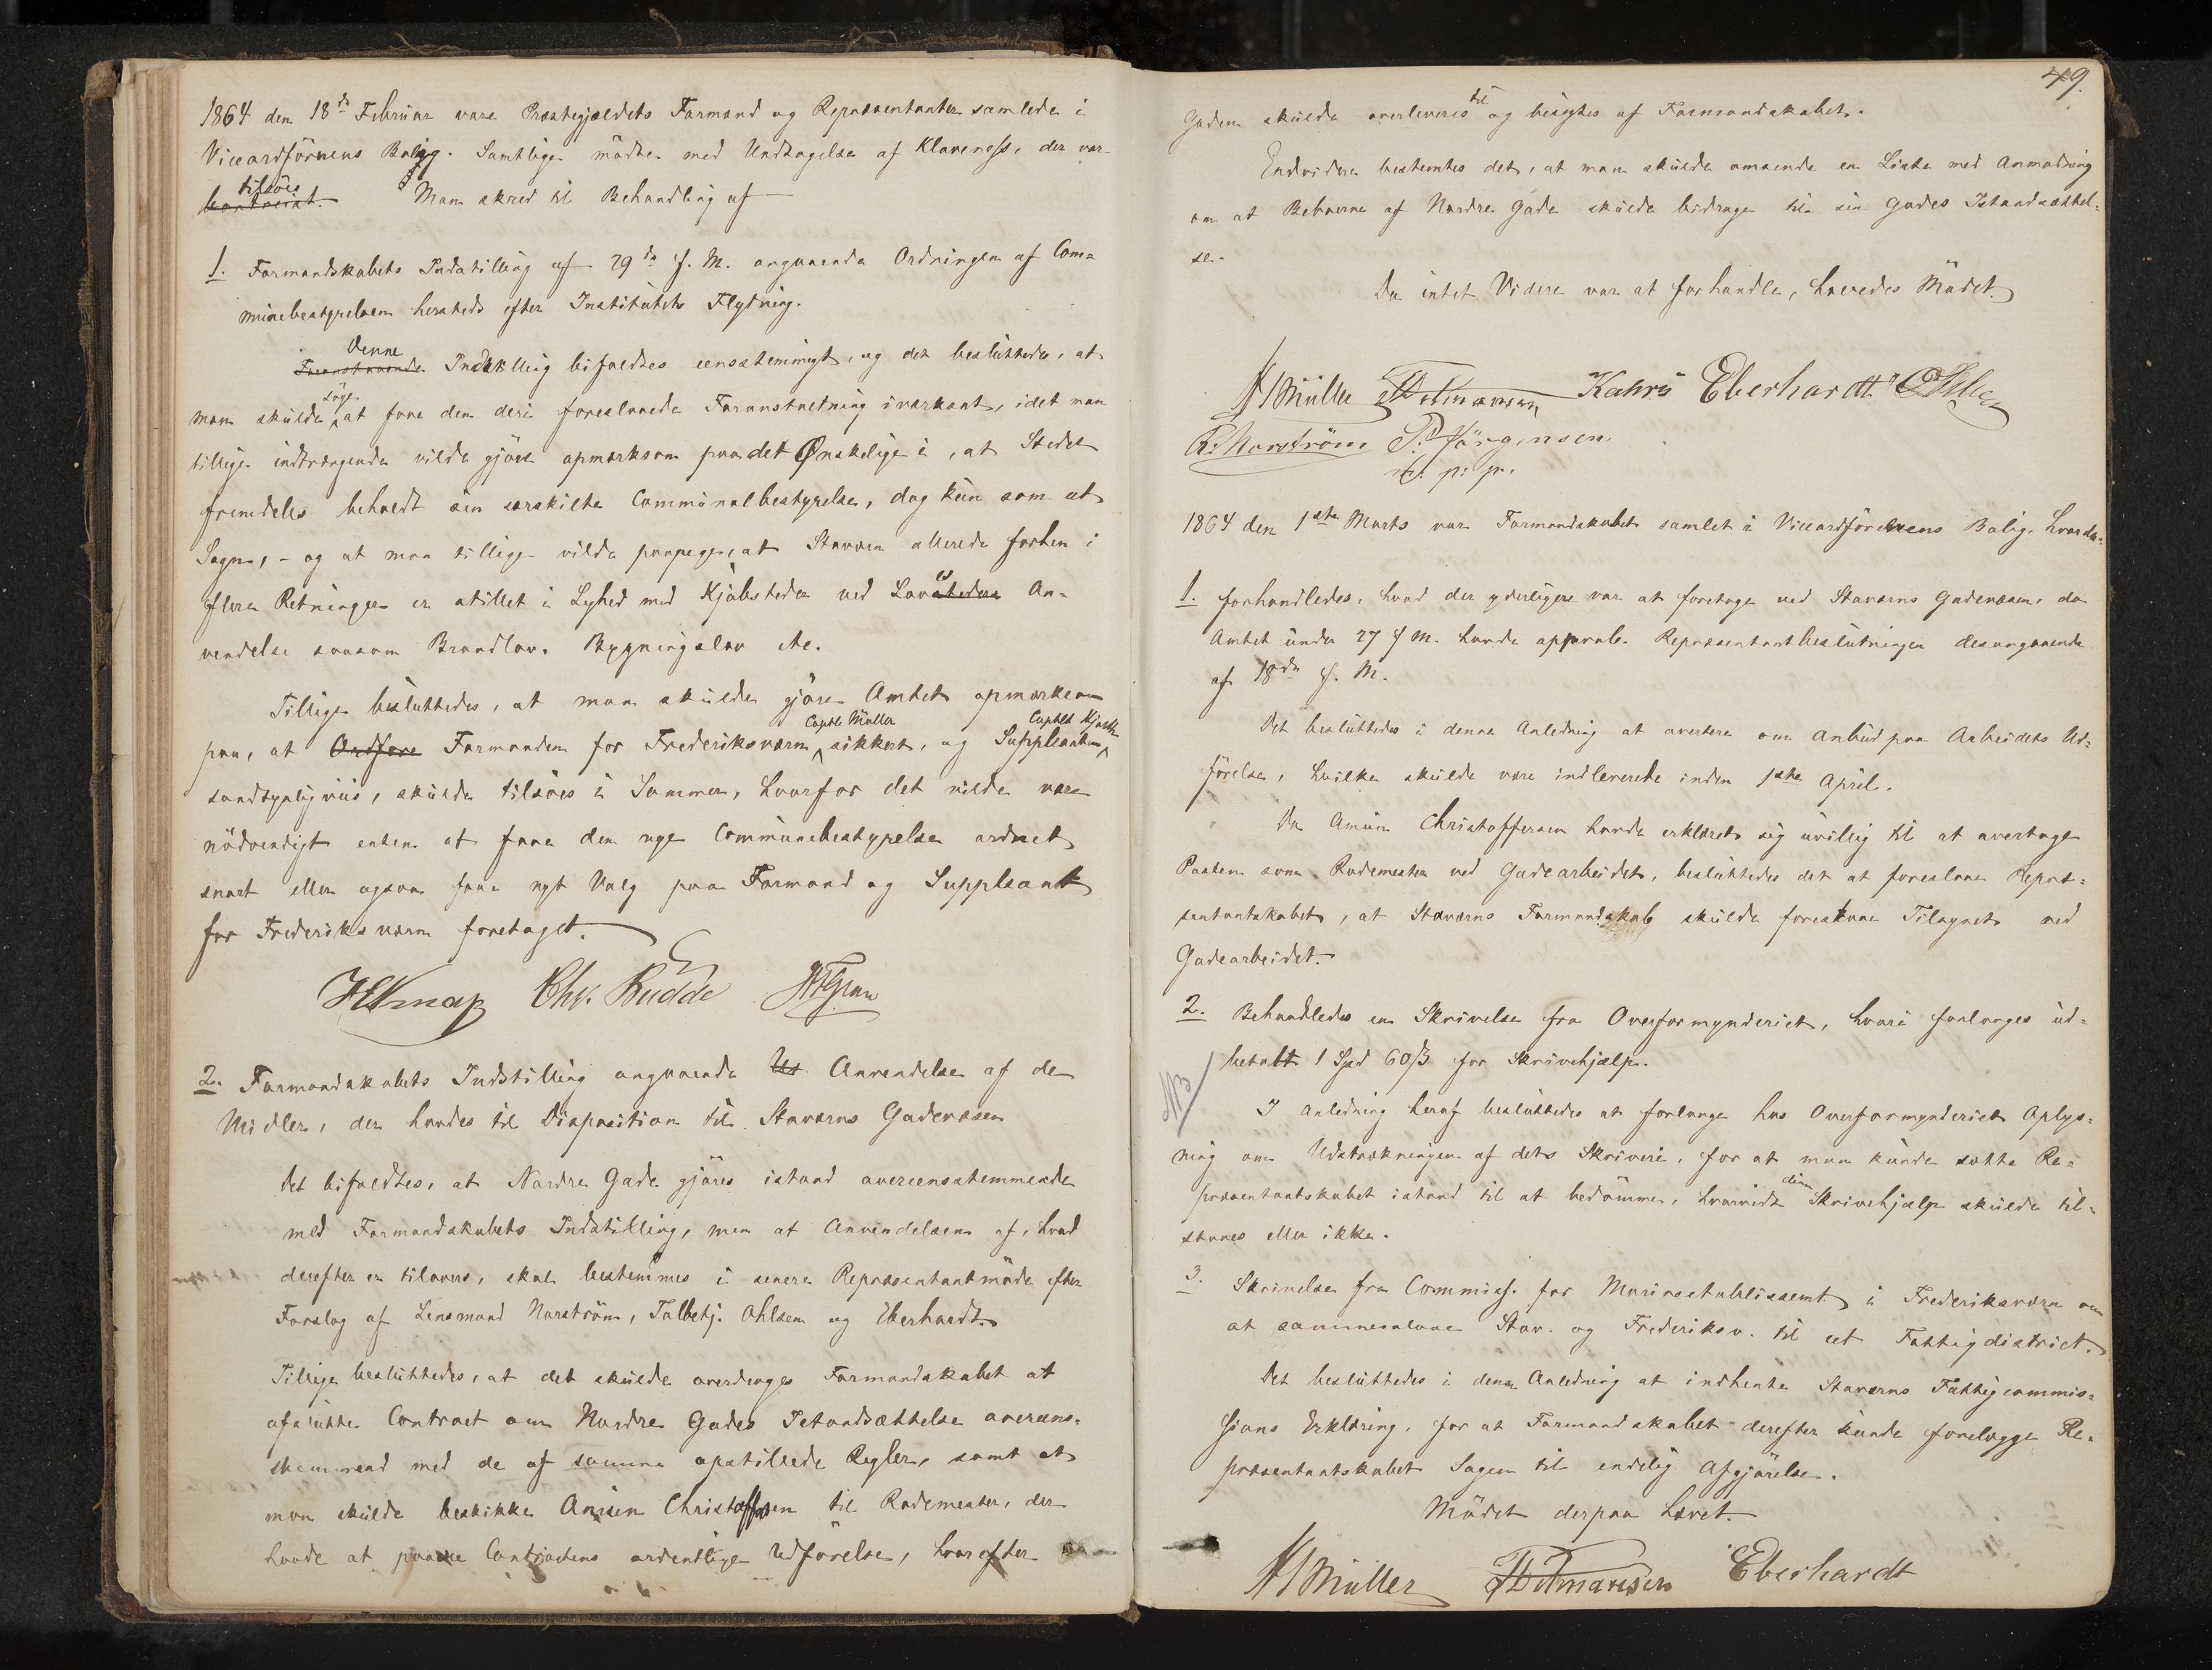 1864 den 18de Februar vare Præstegjeldets Formænd og Repræsentanter samlede i
Viceordförerens Bolig. Samtlige mödte med Undtagelse af Klaveness, der var
tilsöes
bortreist. Man skred til Behandling af
1. Formandskabets Indstilling af 29de f. M. angaaende Ordningen af Com=
munebestyrelsen hersteds efter Institutets Flytning.
Denne
Foranstaaende Indstilling bifaldtes eensstemmigt, og det besluttedes, at
söge
man skulde at faae den deri foreslaaede Foranstaltning iværksat, idet man
tillige indtrængende vilde gjöre opmærksom paa det Ønskelige i, at Stedet
fremdeles beholdt sin særskilte Communalbestyrelse, dog kun som et
Sogn, - og at man tillige vilde paapege, at Staværn allerede forhen i
flere Retninger er stillet i Lighed med Kjöbsteder ved Loves An=
vendelse saasom Brandlov, Bygningslov etc.
Tillige besluttedes, at man skulde gjöre Amtet opmærksom
Captl Müller Captlt Kjerk
paa, at Ordföre Formanden for Frederiksværn sikkert, og Suppleanten
sandsynligviis, skulde tilsöes i Sommer, hvorfor det vilde være
nödvendigt enten at faae den nye Communebestyrelse ordnet
snart eller ogsaa faae nyt Valg paa Formand og Suppleant
for Frederiksværn foretaget.
HEKnap Chr. Budde
2. Formandskabets Indstilling angaaende Us Anvendelse af de
Midler, der havdes til Disposition til Staværns Gadevæsen
Det bifaldtes, at Nordre Gade gjöres istand overeensstemmende
med Formandskabets Indstilling, men at Anvendelsen af, hvad
derefter er tilovers, skal bestemmes i senere Repræsentantmöde efter
Forslag af Lensmand Norström, Toldbetj. Ohlsen og Eberhardt.
Tillige besluttedes, at det skulde overdrages Formandskabet at
afslutte Contract om Nordre Gades Istandsættelse overeens-
stemmend med de af samme opstillede Regler, samt at
man skulde beskikke Anisen Christoffersen til Rodemester, der
havde at paasee Contractens ordentlige Udförelse, hvorefter
49.
til
Gaden skulde overleveres og besigtes af Formandskabet.
Endvidere bestemtes det, at man skulde omsende en Liste med Anmodning
om at Beboerne af Nordre Gade skulde bidrage til sin Gades Istandsættel=
se.
Da intet Videre var at forhandle, hævedes Mödet.
Müller Kahrs Eberhardt
R. Norström P. Jörgensen.
m. p: p.
1864 den 1ste Marts var Formandskabet samlet i Viceordförerens Bolig, hvor der
1. forhandledes, hvad der yderligere var at foretage ved Staværns Gadevæsen, da
Amtet under 27 f M. havde approb. Repræsentantbeslutningen desangaaende
af 18de f. M.
Det besluttedes i denne Anledning at avertere om Anbud paa Arbeidets Ud=
förelse, hvilke skulde være indleverede inden 1ste April.
Da Anisen Christoffersen havde erklæret sig uvillig til at overtage
Posten som Rodemester ved Gadearbeidet, besluttedes det at foreslaae Repræ=
sentantskabet, at Staværns Formandskab skulde forestaae Tilsynet ved
Gadearbeidet.
2. Behandledes en Skrivelse fra Overformynderiet, hvori forlanges ud=
betalt 1 Spd 60 ß for Skrivehjælp.
I Anledning heraf besluttedes at forlange hos Overformynderiet Oplys=
ning om Udstrækningen af dets Skriveri, for at man kunde sætte Re=
denne
præsentantskabet istand til at bedömme, hvorvidt Skrivehjælp skulde til=
staaes eller ikke.
3. Skrivelse fra Commiss. for Marineetablissemt. i Frederiksværn om
at sammenslaae Stav. og Frederiksv. til eet Fattigdistrict.
Det besluttedes i denne Anledning at indhente Staværns Fattigcommis=
sions Erklæring, for at Formandskabet derefter kunde forelægge Re=
præsentantskabet Sagen til endelig Afgjörelse.
Mödet derpaa hævet.
Müller Eberhardt